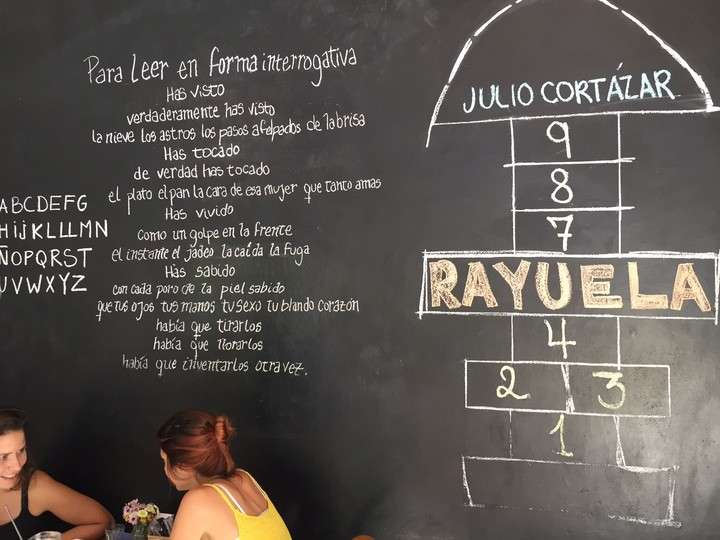 Para Leer en forma interrogativa
Has visto
verdaderamente has visto
la nieve los astros los pasos afelpados de la brisa
Has tocado
de verdad has tocado
el plato el pan la cara de esa mujer que tanto amas
Has vivido
como un golpe en la frente
el instante el jadeo la caída la fuga
Has sabido
con cada poro de la piel sabido
que tus ojos tus manos tu sexo tu blando corazón
había que tirarlos
había que llorarlos
había que inventarlos otra vez.
ABCDEFG
HijKLLLMN
ÑOPQRST
UVWXYZ
JULIO CORTÁZAR
9
8
7
RAYUELA
4
2 3
1